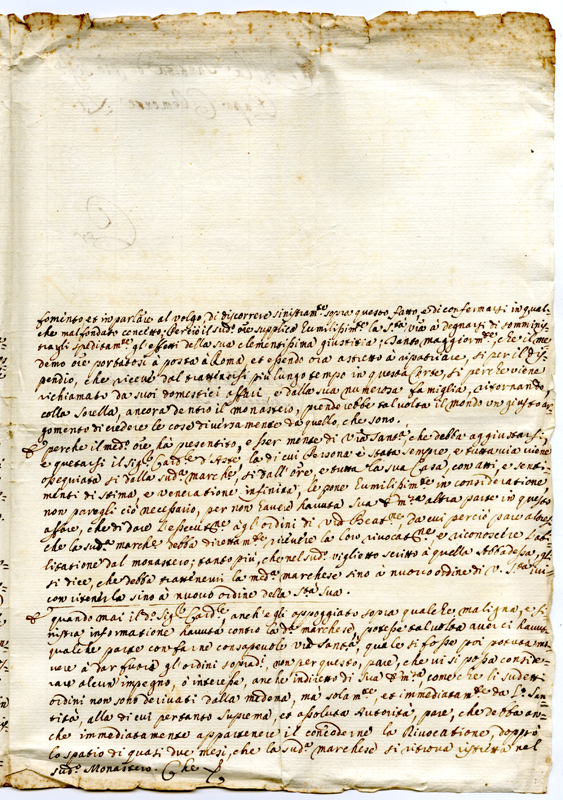 fomento et in parlare al volgo, di discorrere sinistram.te sopra questo fatto, e di confermarsi in qual-
che mal fondato concetto; Perciò il sud.o ore supplica Humiliss.te la S.tà V.ra à degnarsi di somminis-
trargli speditam.te gl'effetti della sua clementissima giustitia; Santo, maggiorm.te, che il me-
demo ore portatosi à posta à Roma, et essendo ora astretto à ripatriare, si per il dis-
pendio, che riceve dal trattenersi più lungo tempo in questa Corte, si perche viene
richiamato da suoi domestici affari, e dalla sua numerosa famiglia, ritornando,
colla Sorella, ancora dentro il monastero, prenderebbe tal volta il mondo un giusto ar-
gomento di credere le cose diversamente da quello, che sono.
E perche il med.o ore hà presentito, esser mente di V.ra Sant.tà, che debba aggiustarsi,
e quetarsi il Sig.r Card.le d'Este, la di cui Persona è stata sempre, e tuttavia viene
ossequiata si dalla sud.a march.e, si dall'Ore, e tutta la sua Casa, con atti, e senti-
menti di stima, e veneratione infinita, le pone Humilissim.te in consideratione
non parergli ciò necessario, per non haver havuta Sua Em.za altra parte in questo
affare, che di dare l'esecut.ne à gli ordini di V.ra Beat.ne, da cui perciò pare alt.e
che la sud.a march.e debba direttam.te ricevere la loro rivocat.ne e riconoscere l'ab-
litatione dal monastero; tanto più, che nel sud.o viglietto scritto à quella Abbadessa, gli
si dice, che debba trattenervi la med.a marchese sino à nuovo ordine di V. S.tà ivi:
con ritenerla sino à nuovo ordine della S.tà Sua.
E quando mai il d.o Sig.r Card.le, anch'egli appoggiato sopra qualche maligna, e si-
nistra informatione havuta contro la d.a marchesa, potesse tal volta averci havuta
qualche parte con farne consapevole V.ra Santità, quale si fosse poi potuta mo-
vere à dar fuora gli ordini soprad.i, non per questo, pare, che vi si possa conside-
rare alcun impegno, ò interesse, anche indiretto di Sua Em.za come che li sudetti
ordini non sono derivati dalla med.ma, mà solam.te, et immediatam.te da V.ra San-
tità, alla di cui pertanto Suprema, et assoluta Autorità, pare, che debba an-
che immediatamente appartenere il concederne la Rivocatione, doppò
lo spatio di quasi due mesi, che la sud.a marchese si ritrova ristretta nel
sud.o Monastero. Che